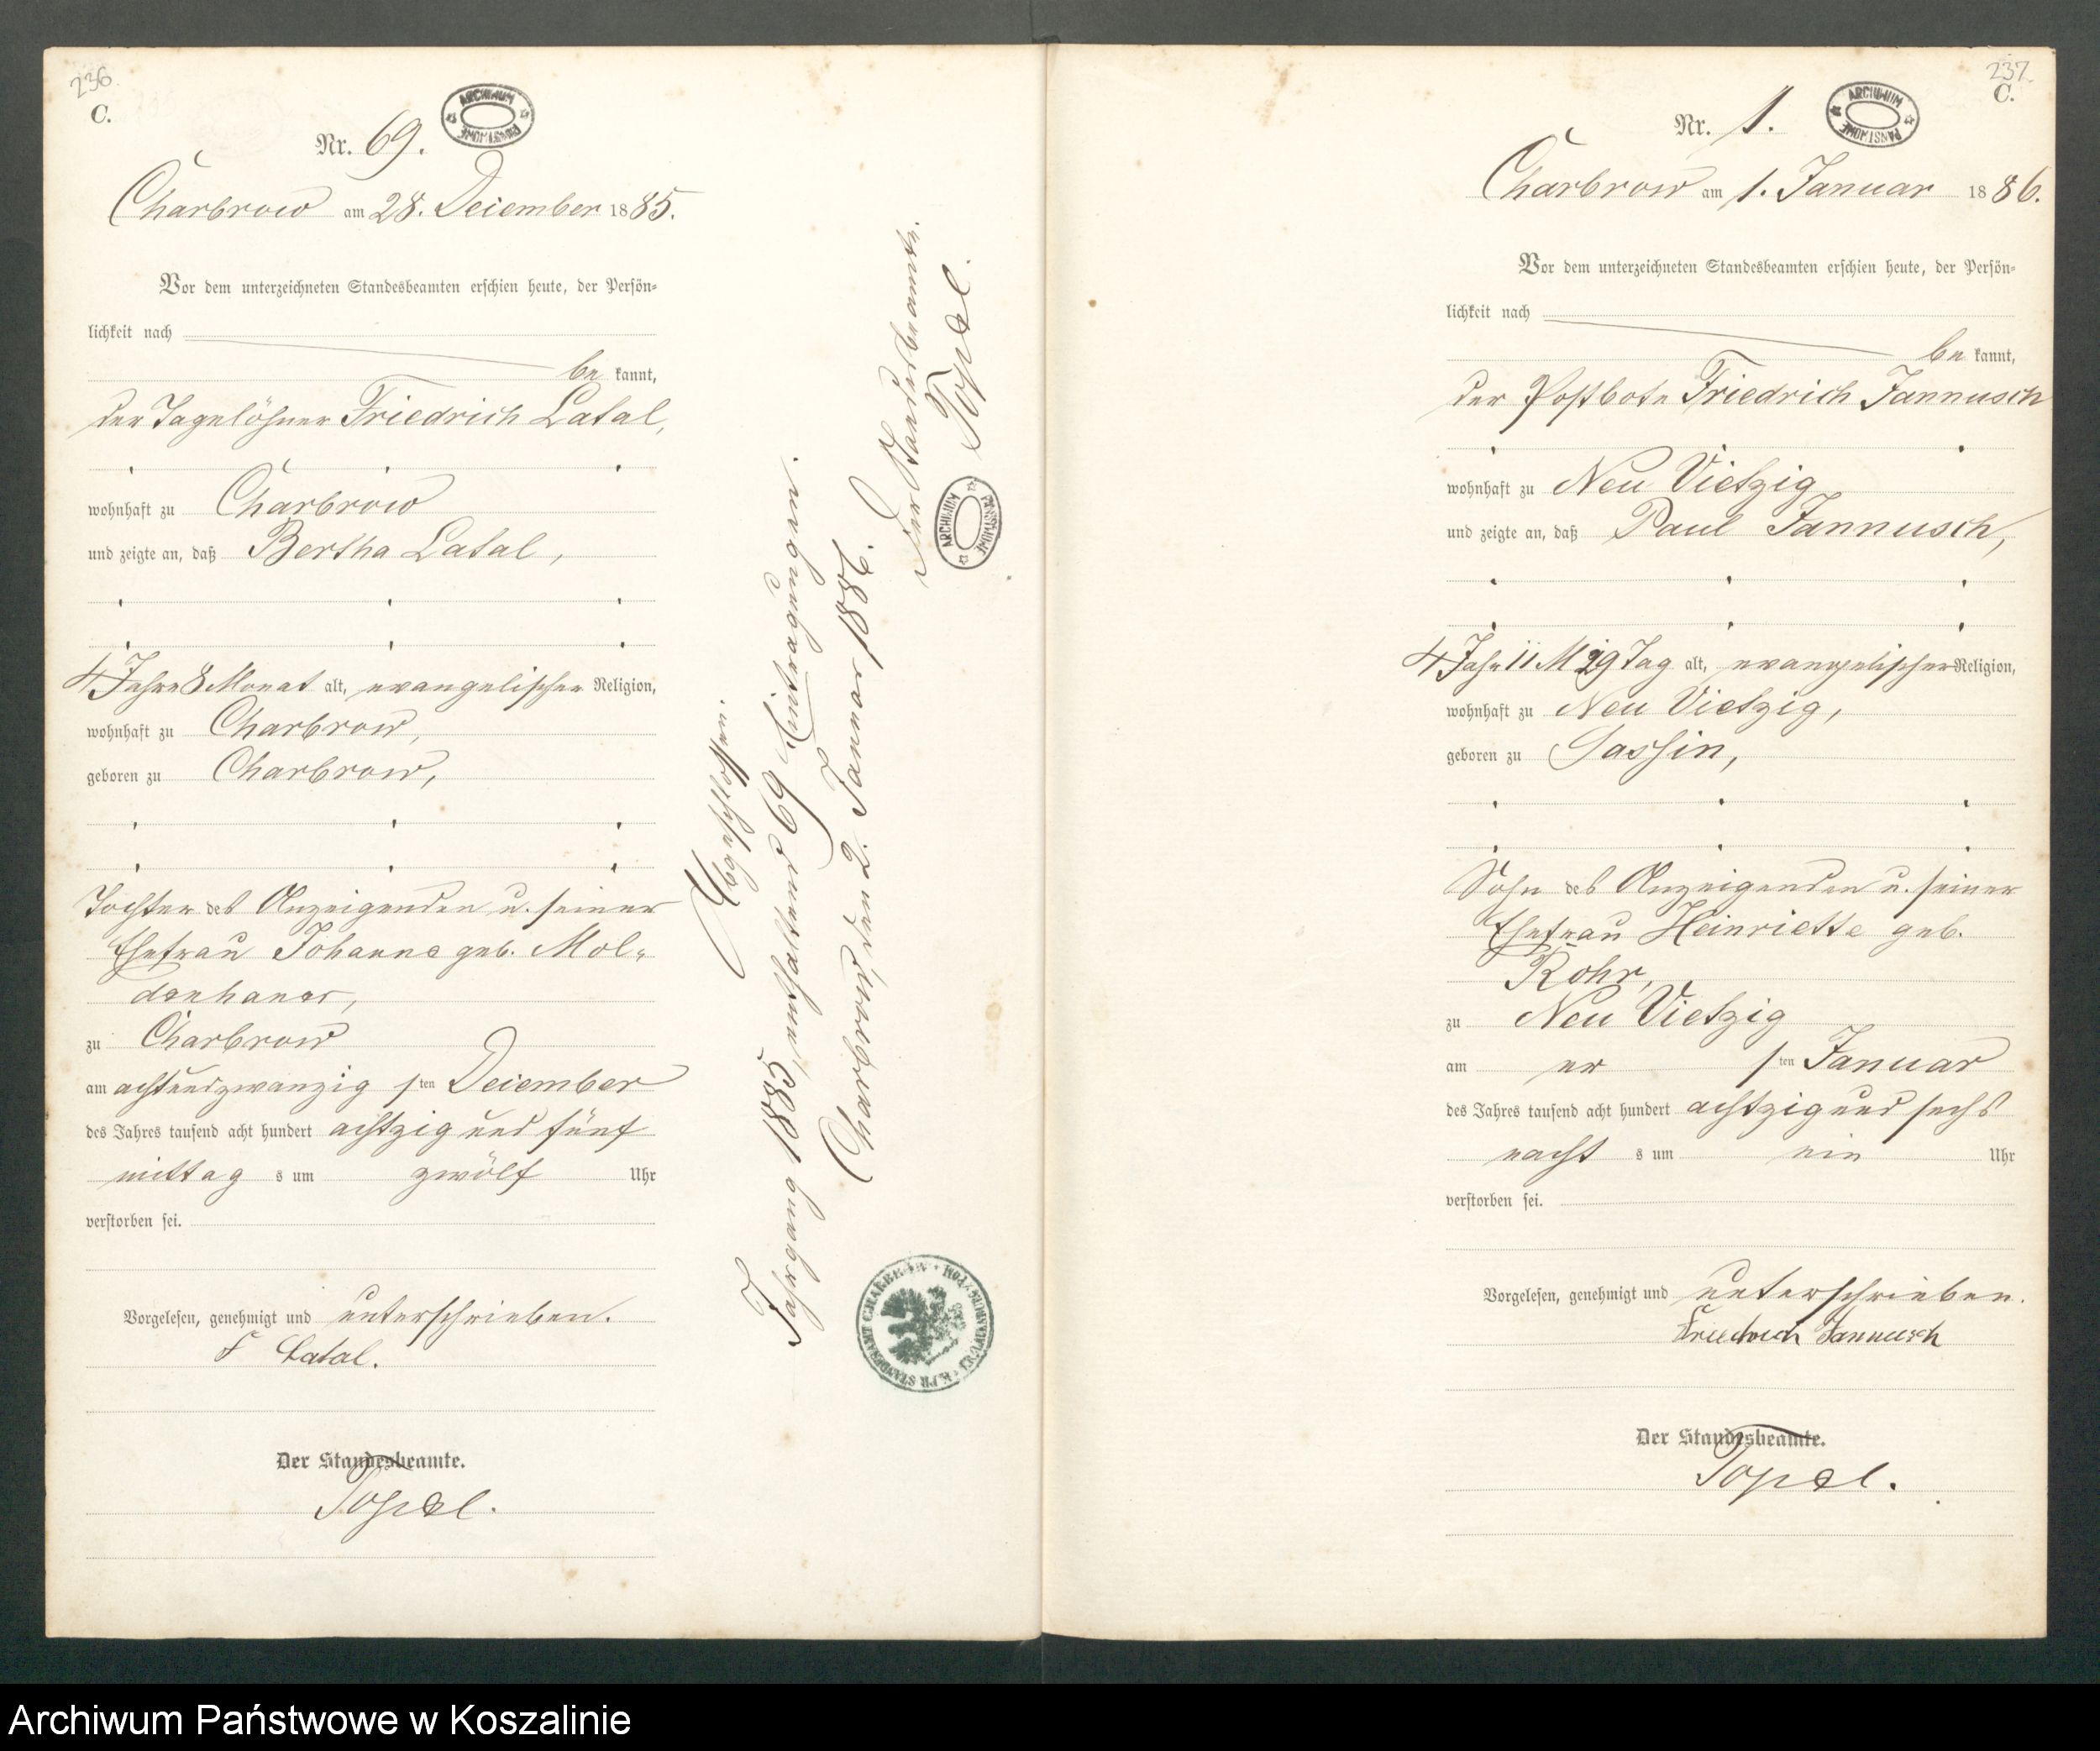 236.
C.
ARCHIWUM PAŃSTWOWE
Nr. 69.
Charbrow am 28. December 1885.
Vor dem unterzeichneten Standesbeamten erschien heute, der Persön-
lichkeit nach
be kannt,
der Tagelöhner Friedrich Latal,
wohnhaft zu Charbrow
und zeigte an, daß Bertha Latal,
4 Jahre 8 Monat alt, evangelischer Religion,
wohnhaft zu Charbrow,
geboren zu Charbrow,
Tochter des Anzeigenden u. seiner
Ehefrau Johanna geb. Mol-
denhauer,
zu Charbrow
am achtundzwanzig sten December
des Jahres tausend acht hundert achtzig und fünf
mittag s um zwölf Uhr
verstorben sei.
Vorgelesen, genehmigt und unterschrieben.
F Latal.
Der Standesbeamte.
Topel.
Abgeschlossen.
Jahrgang 1885, enthaltend 69 Eintragungen.
Charbrow, den 2. Januar 1886.
Der Standesbeamte.
Topel.
ARCHIWUM PAŃSTWOWE
K. PR. STANDESAMT CHARBROW
237.
C.
ARCHIWUM PAŃSTWOWE
Nr. 1.
Charbrow am 1. Januar 1886.
Vor dem unterzeichneten Standesbeamten erschien heute, der Persön-
lichkeit nach
be kannt,
der Postbote Friedrich Jannusch
wohnhaft zu Neu Vietzig
und zeigte an, daß Paul Jannusch,
4 Jahr 11 M 29 Tag alt, evangelischer Religion,
wohnhaft zu Neu Vietzig,
geboren zu Sassin,
Sohn des Anzeigenden u. seiner
Ehefrau Heinriette geb.
Rohr,
zu Neu Vietzig
am er sten Januar
des Jahres tausend acht hundert achtzig und sechs
nacht s um ein Uhr
verstorben sei.
Vorgelesen, genehmigt und unterschrieben.
Friedrich Jannusch
Der Standesbeamte.
Topel.
Archiwum Państwowe w Koszalinie